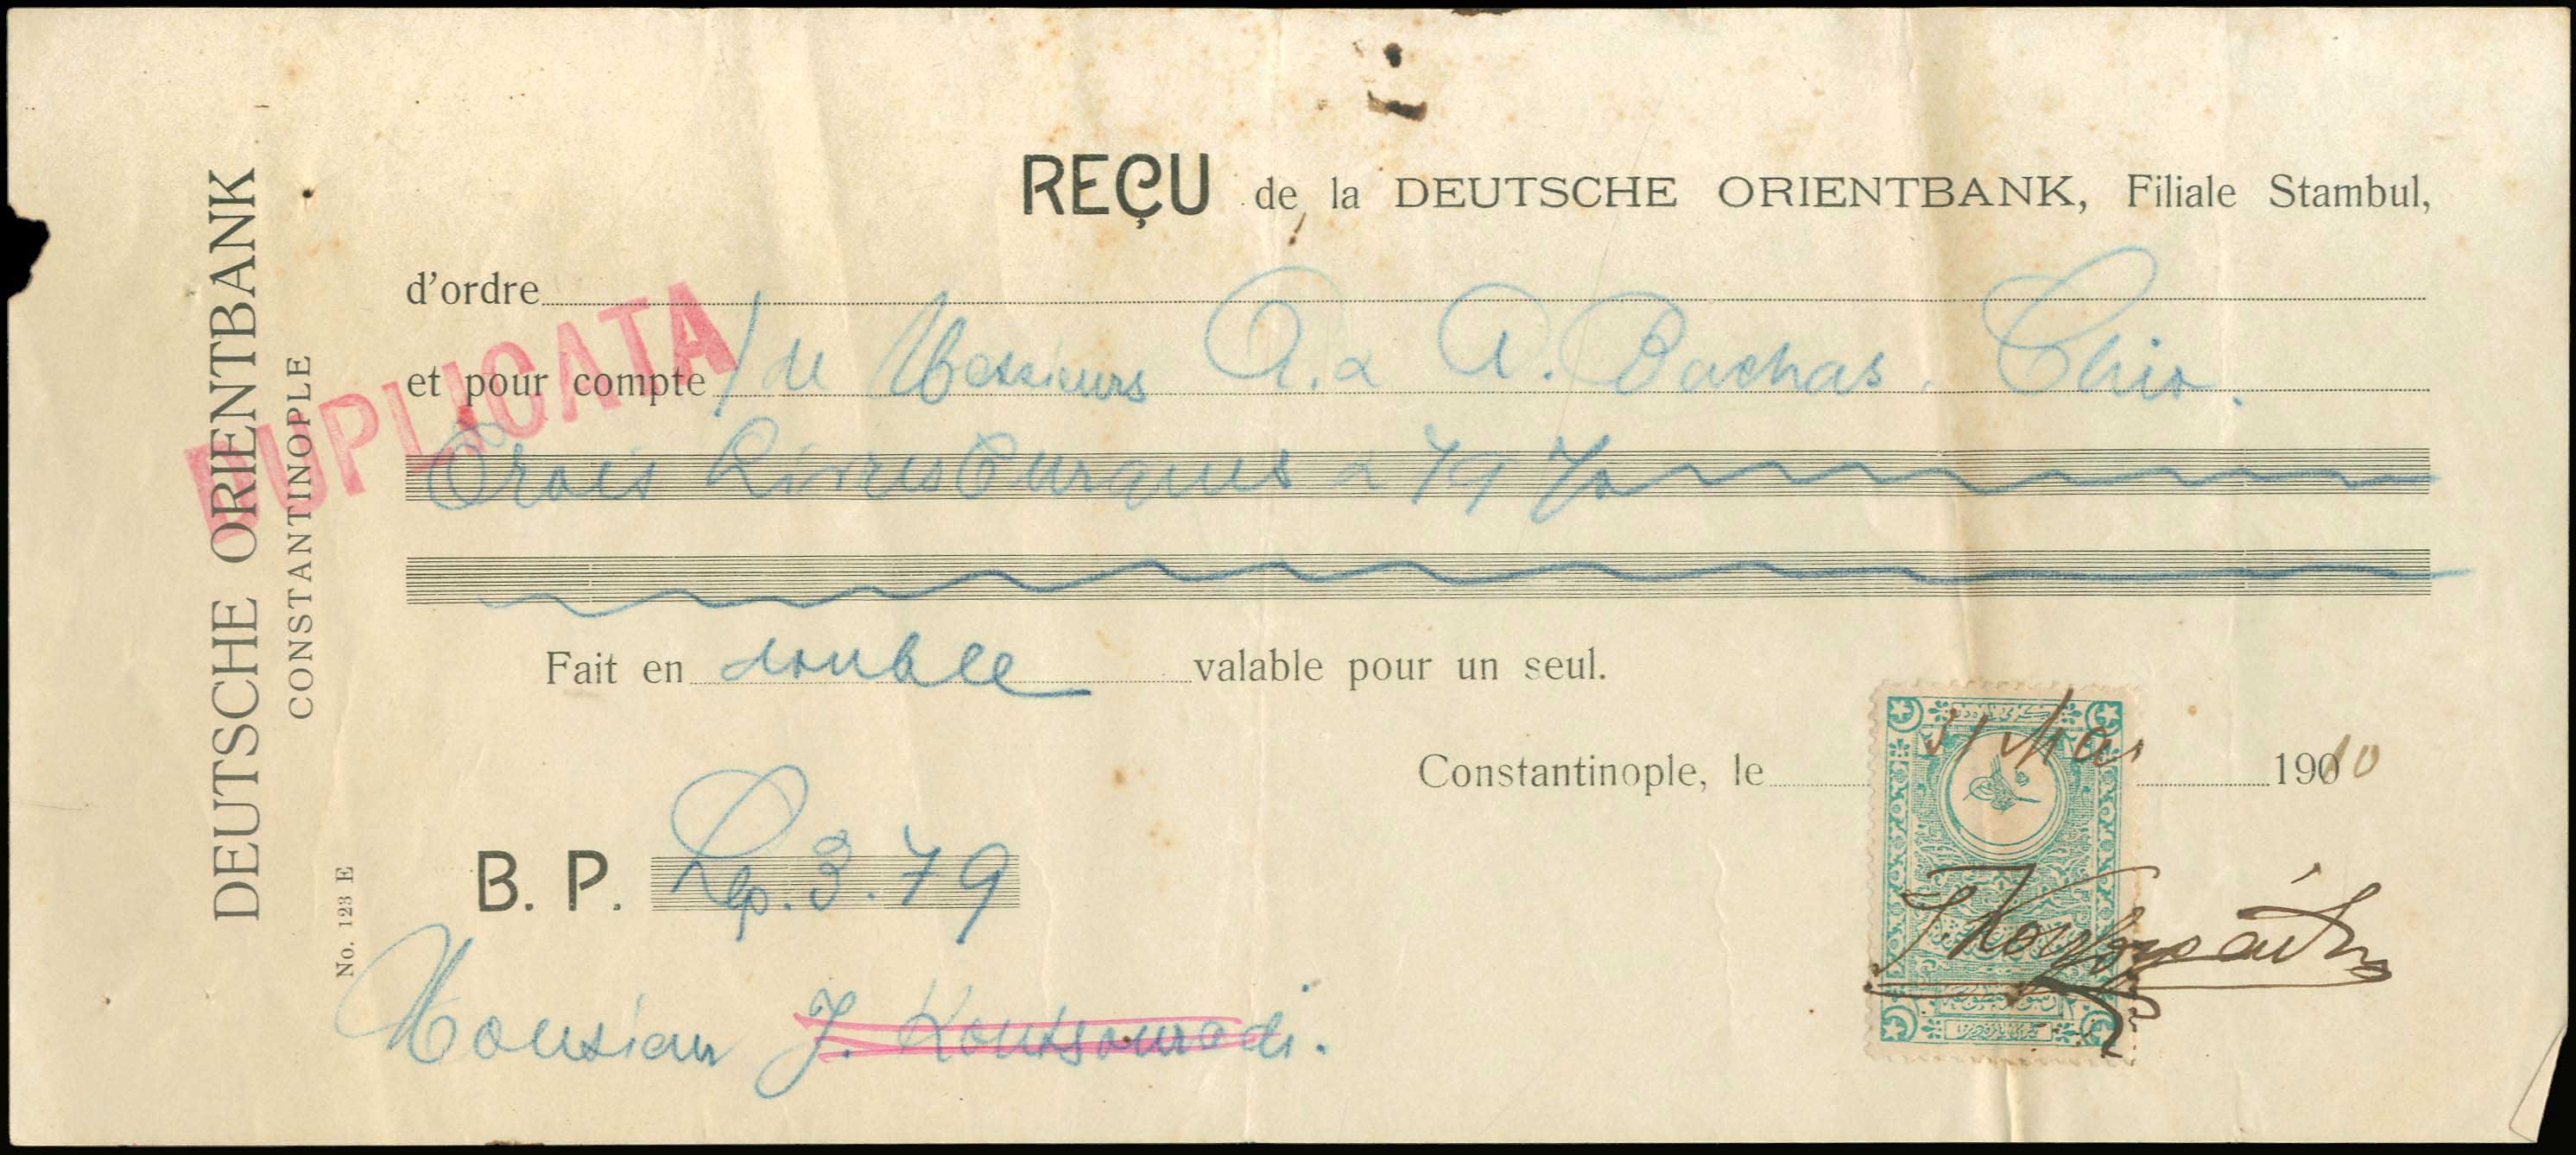 DEUTSCHE ORIENTBANK
CONSTANTINOPLE
No. 123 E
DUPLICATA
REÇU de la DEUTSCHE ORIENTBANK, Filiale Stambul,
d'ordre
et pour compte / de Messieurs A. & A. Pachas. Chio.
Trois Livres Turques & 79 %
Fait en double valable pour un seul.
Constantinople, le 31 Mai 1910
B. P. Ltp. 3.79
Monsieur J. Koutsouradi.